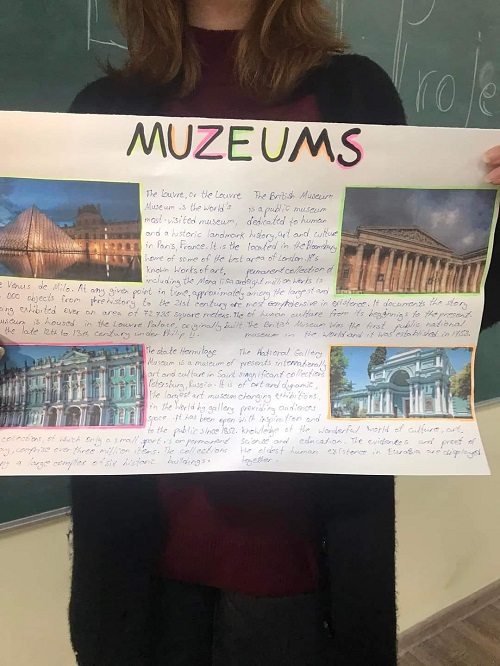 Proje
MUZEUMS
The Louvre, or the Louvre
Museum is the world's
most-visited museum,
and a historic landmark
in Paris, France. It is the
home of some of the best
known works of art,
including the Mona Lisa and
Venus de Milo. At any given point in time, approximately
000 objects from prehistory to the 21st century are
being exhibited over an area of 72.735 square meters. The
museum is housed in the Louvre Palace, originally built
the late 12th to 13th century under Philip II.
The British Museum
is a public museum
dedicated to human
history, art and culture
located in the Bloomsbury
area of London. It's
permanent collection of
eight million works is
among the largest and
most comprehensive in existence. It documents the story
of human culture from its beginnings to the present.
The British Museum was the first public national
museum in the world and it was established in 1753.
The state Hermitage
Museum is a museum of
art and culture in Saint
Petersburg, Russia. It is
the largest art museum
in the world by gallery
space. It has been open
to the public since 1852.
collections, of which only a small part is on permanent
comprise over three million items. The collections
a large complex of six historic buildings.
The National Gallery
presents internationally
significant collections
of art and dynamic,
changing exhibitions,
providing audiences
with inspiration and
knowledge of the wonderful world of culture, art,
science and education. The evidences and proof of
the oldest human existence in Eurasia are displayed
together.